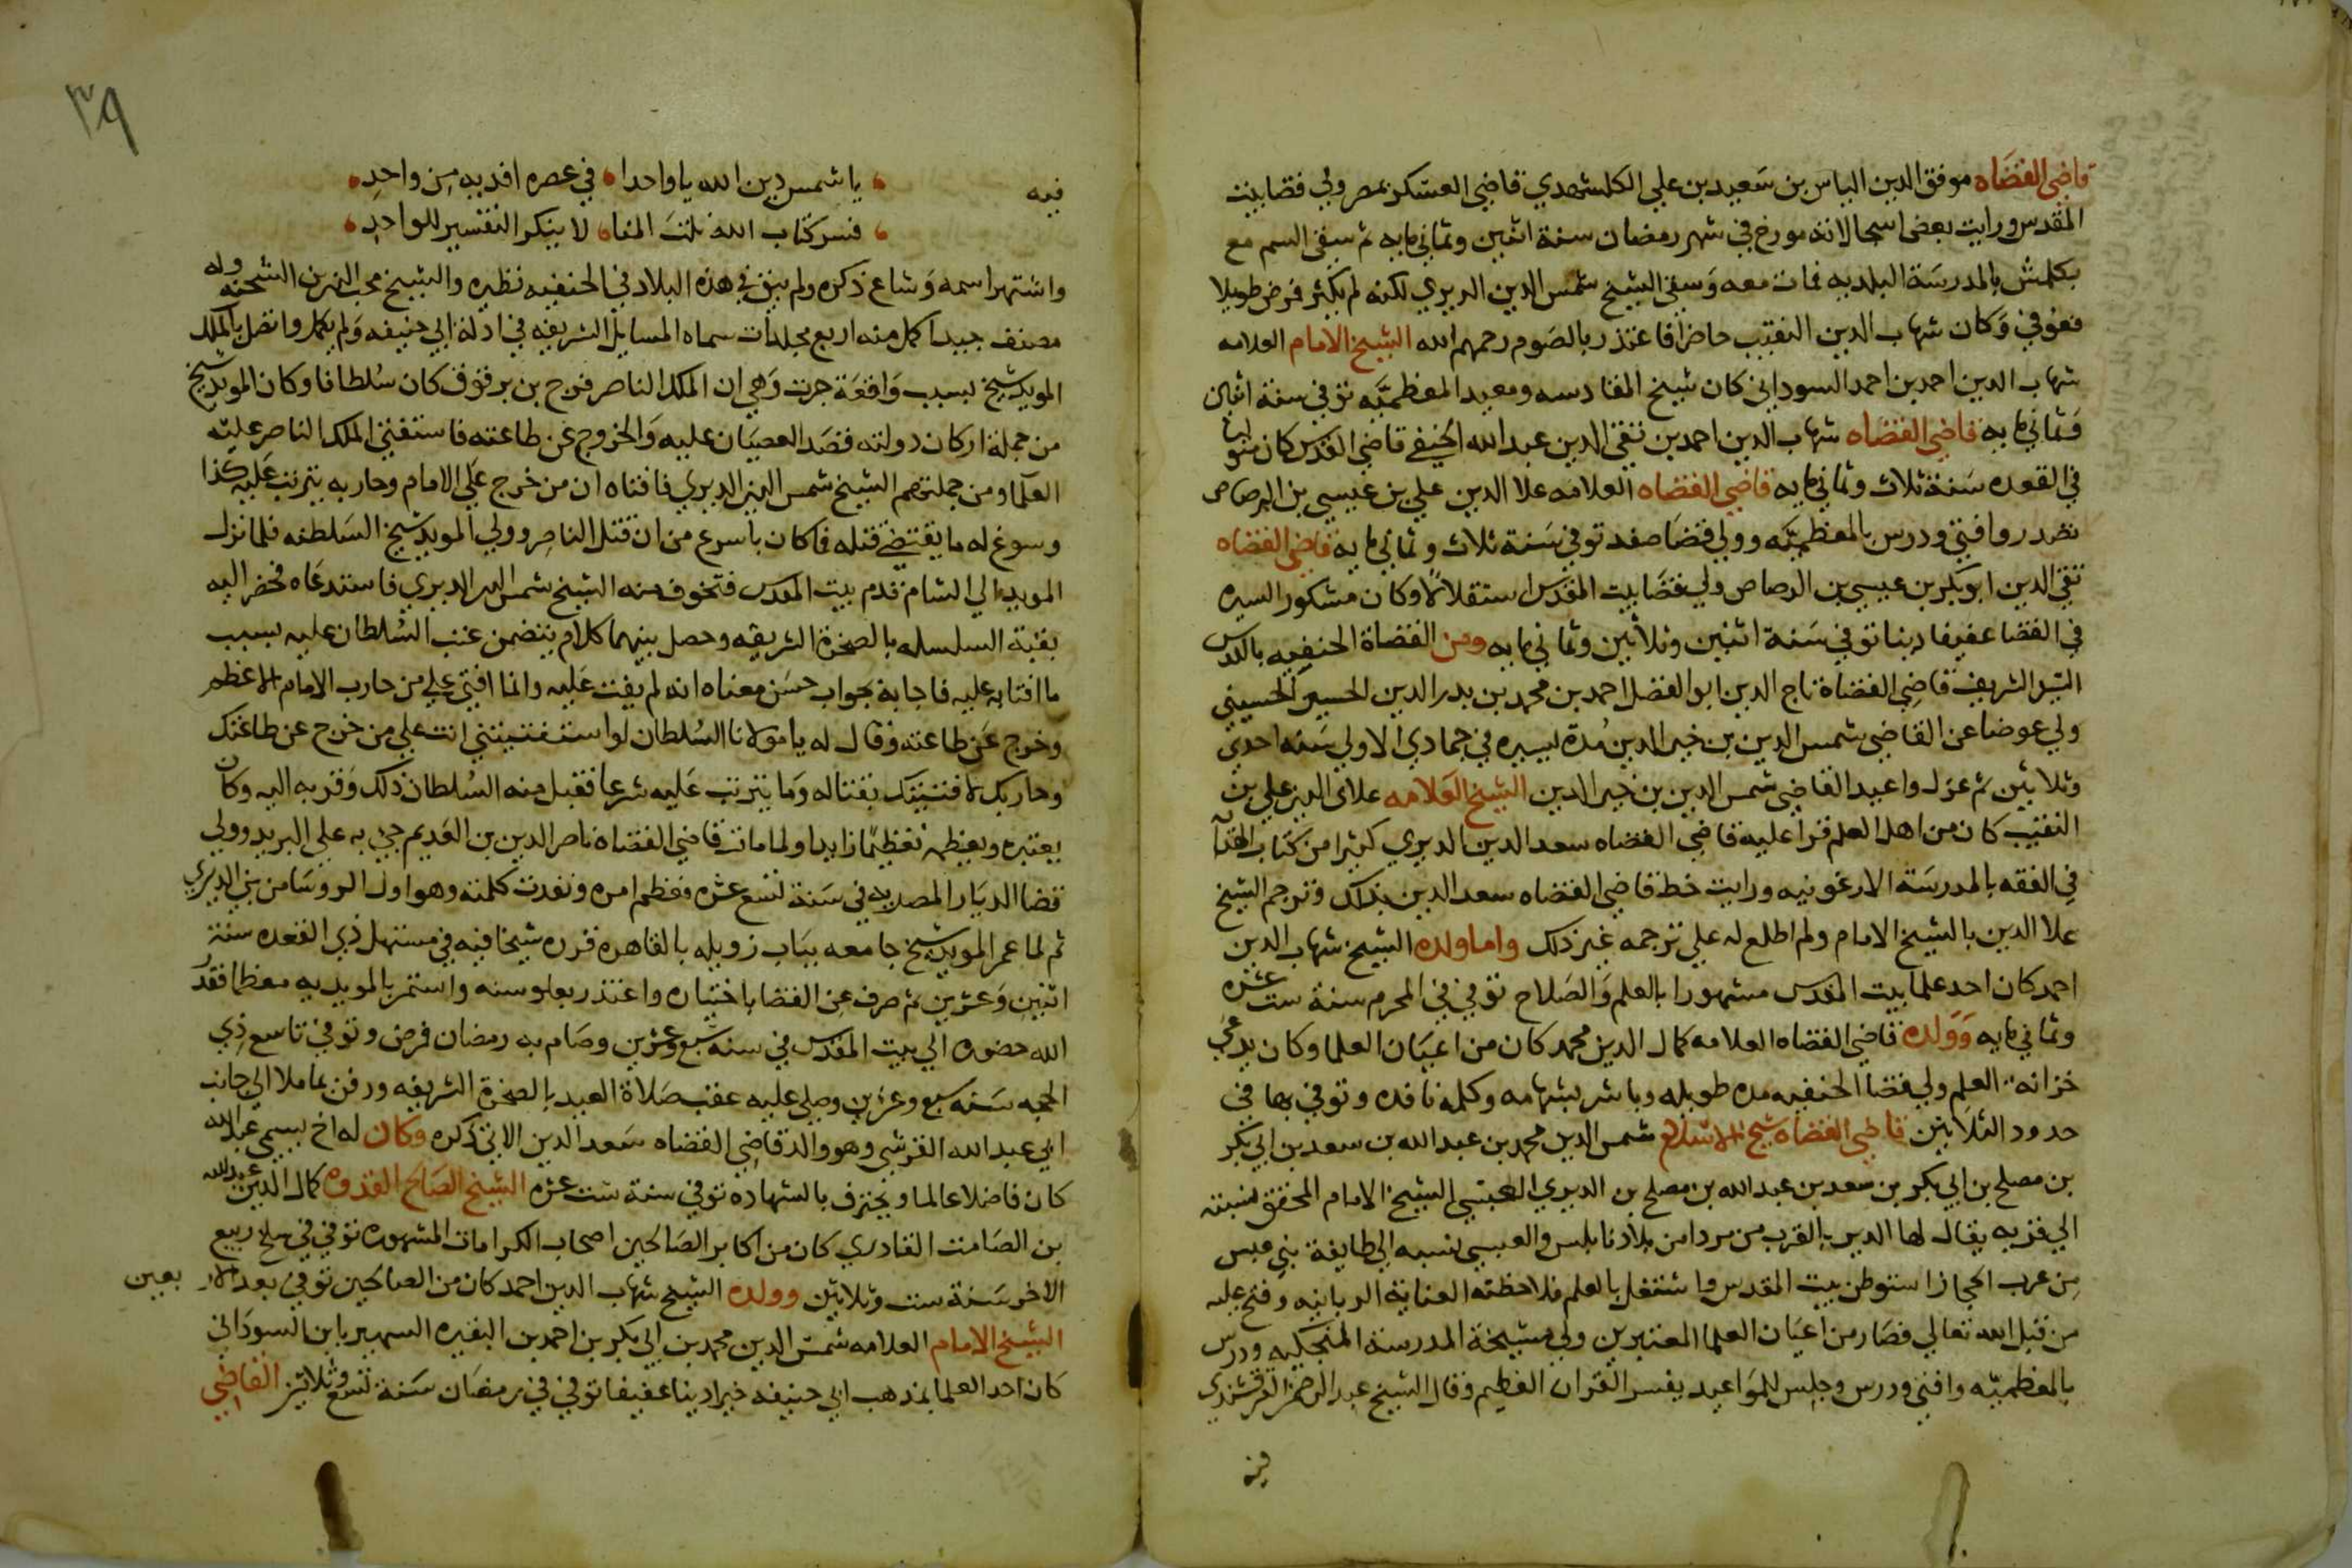 قاضي القضاه موفق الدين الياس بن سعيد بن علي الكلشهدي قاضي العسكر بمصر ولي قضا بيت
المقدس ورايت بعض اسجالاته مورخ في شهر رمضان سنة اثنين وثماني مايه ثم سقي السم مع
بكلمش بالمدرسة البلديه فمات معه وسقي الشيخ شمس الدين الديري لكنه لم يكثر فمرض طويلا
فعوفي وكان شهاب الدين النقيب حاضرا فاعتذر بالصوم رحمهم الله الشيخ الامام العلامه
شهاب الدين احمد بن احمد السوداني كان شيخ القادسه ومعيد المعظميه توفي سنة اثنان
وثماني مايه قاضي القضاه شهاب الدين احمد بن تقي الدين عبد الله الحنفي قاضي القدس كان متوليا
في القعده سنة ثلاث وثماني مايه قاضي القضاه العلامه علا الدين علي بن عيسي بن الرصاص
تصدر وافتي ودرس بالمعظميه وولي قضا صفد توفي سنة ثلاث وثماني مايه قاضي القضاه
تقي الدين ابو بكر بن عيسي بن الرصاص ولي قضا بيت المقدس استقلالا وكان مشكور السيره
في القضا عفيفا دينا توفي سنة اثنين وثلاثين وثماني مايه ومن القضاة الحنفيه بالقدس
السيد الشريف قاضي القضاة تاج الدين ابو الفضل احمد بن محمد بن بدر الدين الحسين الحسيني
ولي عوضا عن القاضي شمس الدين بن خير الدين مدة يسيره في جمادي الاولي سنه احدي
وثلاثين ثم عزل واعيد القاضي شمس الدين بن خير الدين الشيخ العلامه علاي الدين علي بن
النقيب كان من اهل العلم قرا عليه قاضي القضاه سعد الدين الديري كثيرا من كتاب
في الفقه بالمدرسة الارغونيه ورايت خط قاضي القضاه سعد الدين بذلك وترجم الشيخ
علا الدين بالشيخ الامام ولم اطلع له علي ترجمه غير ذلك واما ولده الشيخ شهاب الدين
احمد كان احد علما بيت المقدس مشهورا بالعلم والصلاح توفي في المحرم سنة ست عشره
وثماني مايه وولده قاضي القضاه العلامه كمال الدين محمد كان من اعيان العلما وكان يدعي
خزانة العلم ولي قضا الحنفيه مده طويله وباشر بشهامه وكلمه نافده وتوفي بها في
حدود الثلاثين قاضي القضاه شيخ الاسلام شمس الدين محمد بن عبد الله بن سعد بن ابي بكر
بن مصلح بن ابي بكر بن سعد بن عبد الله بن مصلح بن الديري العبسي الشيخ الامام المحقق نسبته
الي قريه يقال لها الدير بالقرب من مردا من بلاد نابلس والعبسي نسبه الي طايفة بني عبس
من عرب الحجاز استوطن بيت المقدس واشتغل بالعلم فلاحظته العناية الربانيه وفتح عليه
من قبل الله تعالي فصار من اعيان العلما المعتبرين ولي مشيخة المدرسة المنجكيه ودرس
بالمعظميه وافتي ودرس وجلس للمواعيد يفسر القران العظيم وقال الشيخ عبد الرحمن القرقشندي
فيه
٣٩
فيه
يا شمس دين الله يا واحدا في عصره افديه من واحد
فسر كتاب الله نلت المنا لا ينكر التفسير للواحد
واشتهر اسمه وشاع ذكره ولم يبق في هذه البلاد في الحنفيه نظيره والشيخ محب الدين بن الشحنه وله
مصنف جيد اكمل منه اربع مجلدات سماه المسايل الشريفه في ادلة ابي حنيفه ولم يكمل واتصل بالملك
المويد شيخ بسبب واقعة جرت وهي ان الملك الناصر فرج بن برقوق كان سلطانا وكان المويد شيخ
من جملة اركان دولته فقصد العصيان عليه والخروج عن طاعته فاستفتي الملك الناصر عليه
العلما ومن جملتهم الشيخ شمس الدين الديري فافتاه ان من خرج علي الامام وحاربه يترتب عليه كذا
وسوغ له ما يقتضي قتله فما كان باسرع من ان قتل الناصر وولي المويد شيخ السلطنه فلما نزل
المويد الي الشام قدم بيت المقدس فتخوف منه الشيخ شمس الدين الديري فاستدعاه فحضر اليه
بقبة السلسله بالصخرة الشريفه وحصل بينهما كلام يتضمن عتب السلطان عليه بسبب
ما افتا به عليه فاجابه بجواب حسن معناه انه لم يفت عليه وانما افتي علي من حارب الامام الاعظم
وخرج عن طاعته وقال له يا مولانا السلطان لو استفتيتني انت علي من خرج عن طاعتك
وحاربك لافتيتك بقتاله وما يترتب عليه شرعا فقبل منه السلطان ذلك وقربه اليه وكان
يعتبره ويعظمه تعظيما زايدا ولما مات قاضي القضاة ناصر الدين بن العديم جي به علي البريد وولي
قضا الديار المصريه في سنة تسع عشره فعظم امره ونفدت كلمته وهو اول الروسا من بني الديري
ثم لما عمر المويد شيخ جامعه بباب زويله بالقاهره قرره شيخا فيه في مستهل ذي القعده سنة
اثنين وعشرين ثم صرف عن القضا باختياره واعتذر بعلو سنه واستمر بالمويديه معظما فقدر
الله حضوره الي بيت المقدس في سنة سبع وعشرين وصام به رمضان فمرض وتوفي تاسع ذي
الحجه سنه سبع وعشرين وصلي عليه عقب صلاة العيد بالصخرة الشريفه ودفن بماملا الي جانب
ابي عبد الله القرشي وهو والد قاضي القضاه سعد الدين الاتي ذكره وكان له اخ يسمي عبد الله
كان فاضلا عالما ويحترف بالشهاده توفي سنة ست عشره الشيخ الصالح القدوه كمال الدين عبد الله
بن الصامت القادري كان من اكابر الصالحين اصحاب الكرامات المشهوره توفي في سلخ ربيع
الاخر سنة ست وثلاثين وولده الشيخ شهاب الدين احمد كان من الصالحين توفي بعد الاربعين
الشيخ الامام العلامه شمس الدين محمد بن ابي بكر بن احمد بن البقيره السهير بابن السوداني
كان احد العلما بمذهب ابي حنيفه خيرا دينا عفيفا توفي في رمضان سنة تسع وثلاثين القاضي